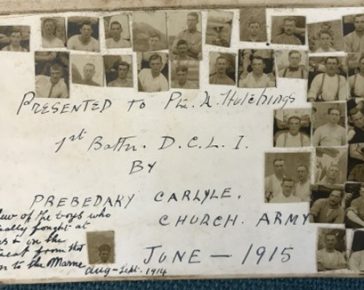 PRESENTED TO Pte. A. Hutchings
1st Battn. D.C.L.I.
BY
PREBEDARY CARLYLE.
CHURCH. ARMY
JUNE — 1915
few of the boys who
ally fought at
s & on the
eat from
to the Marne
Aug - Sept. 1914